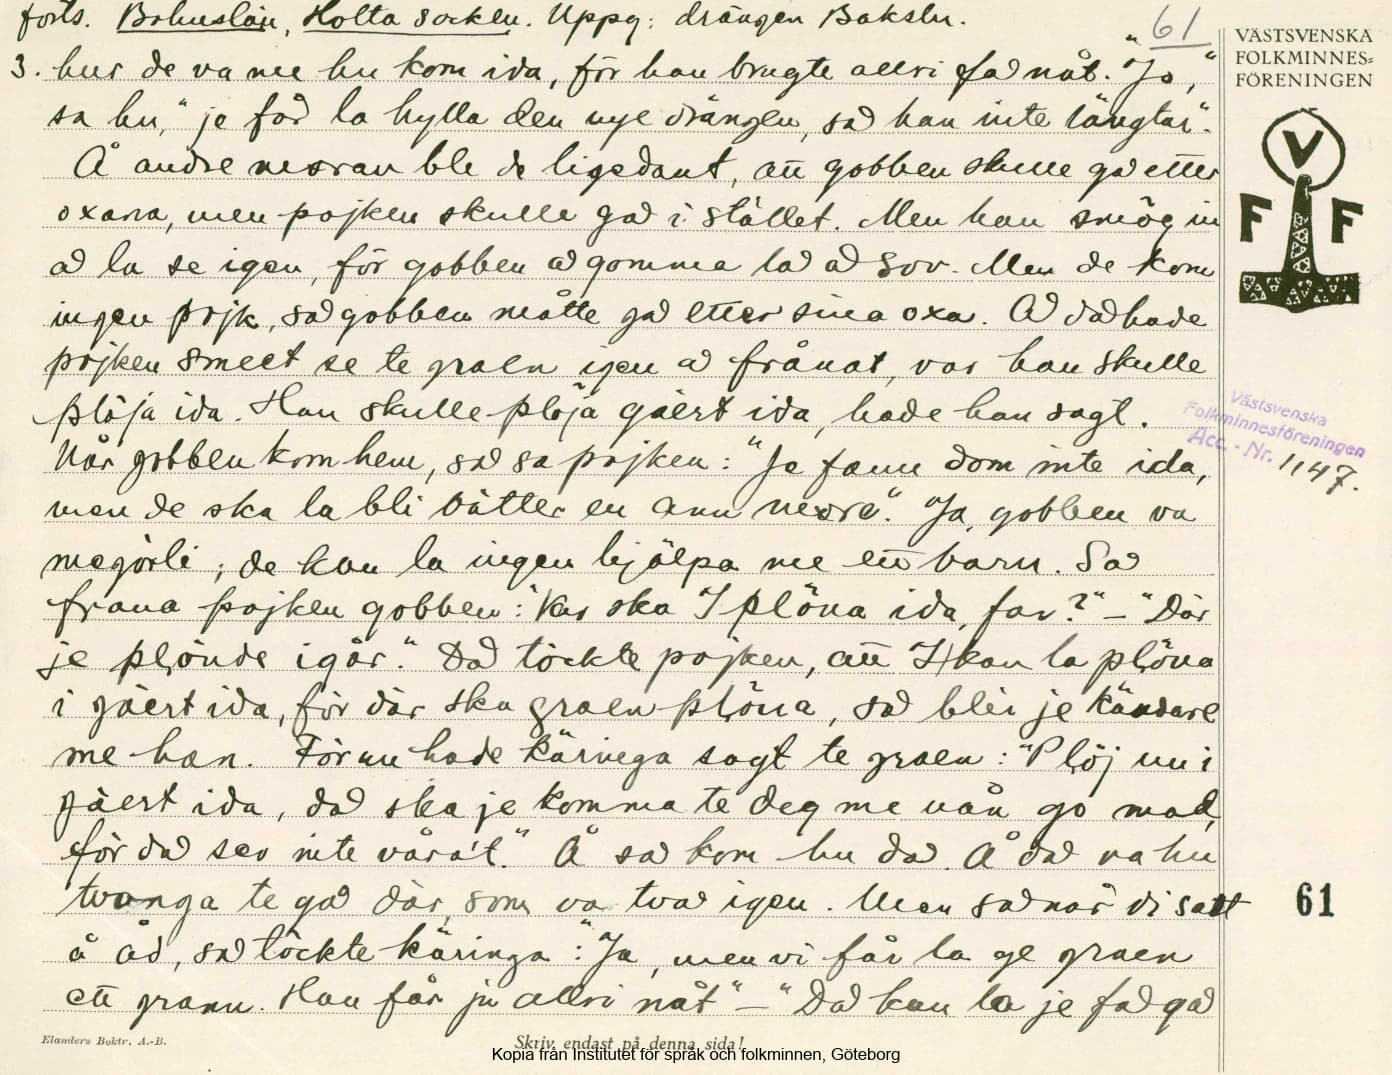 forts. Bohuslän, Holta socken. Uppg: drängen Bakslu.
61
VÄSTSVENSKA
FOLKMINNES=
FÖRENINGEN
V
F F
3. hur de va me hu kom ida, för han brugte allri få nåt. "Jo,"
sa hu, "je får la hylla den nye drängen, så han inte längtar".
Å andre moran ble de ligedant, att gobben skulle gå etter
oxana, men pojken skulle gå i stället. Men han smög in
å la se igen, för gobben å gomma lå å sov. Men de kom
ingen pojk, så gobben måtte gå etter sina oxa. Å då hade
pojken smeet se te graen igen å frånat, var han skulle
plöja ida. Han skulle plöja gäert ida, hade han sagt.
När gobben kom hem, så sa pojken: "Je fann dom inte ida,
men de ska la bli bätter en ann mora". Ja, gobben va
megörli; de kan la ingen hjälpa me ett barn. Så
frana pojken gobben: "Var ska I plöna ida, far?" – "Där
je plönde igår." Då töckte pojken, att I kan la plöna
i gäert ida, för där ska graen plöna, så blir je kändare
me han. För nu hade käringa sagt te graen: "Plöj nu i
gäert ida, då ska je komma te deg me nån go mad,
för då ser inte vårat." Å så kom hu då. Å då va hu
tvonga te gå där, som va två igen. Men så når di satt
å åd, så töckte käringa: "Ja, men vi får la ge graen
ett grann. Han får ju allri nåt" – "Då kan la je få gå
Västsvenska
Folkminnesföreningen
Acc. - Nr. 1147.
61
Elanders Boktr. A.-B.
Skriv endast på denna sida!
Kopia från Institutet för språk och folkminnen, Göteborg